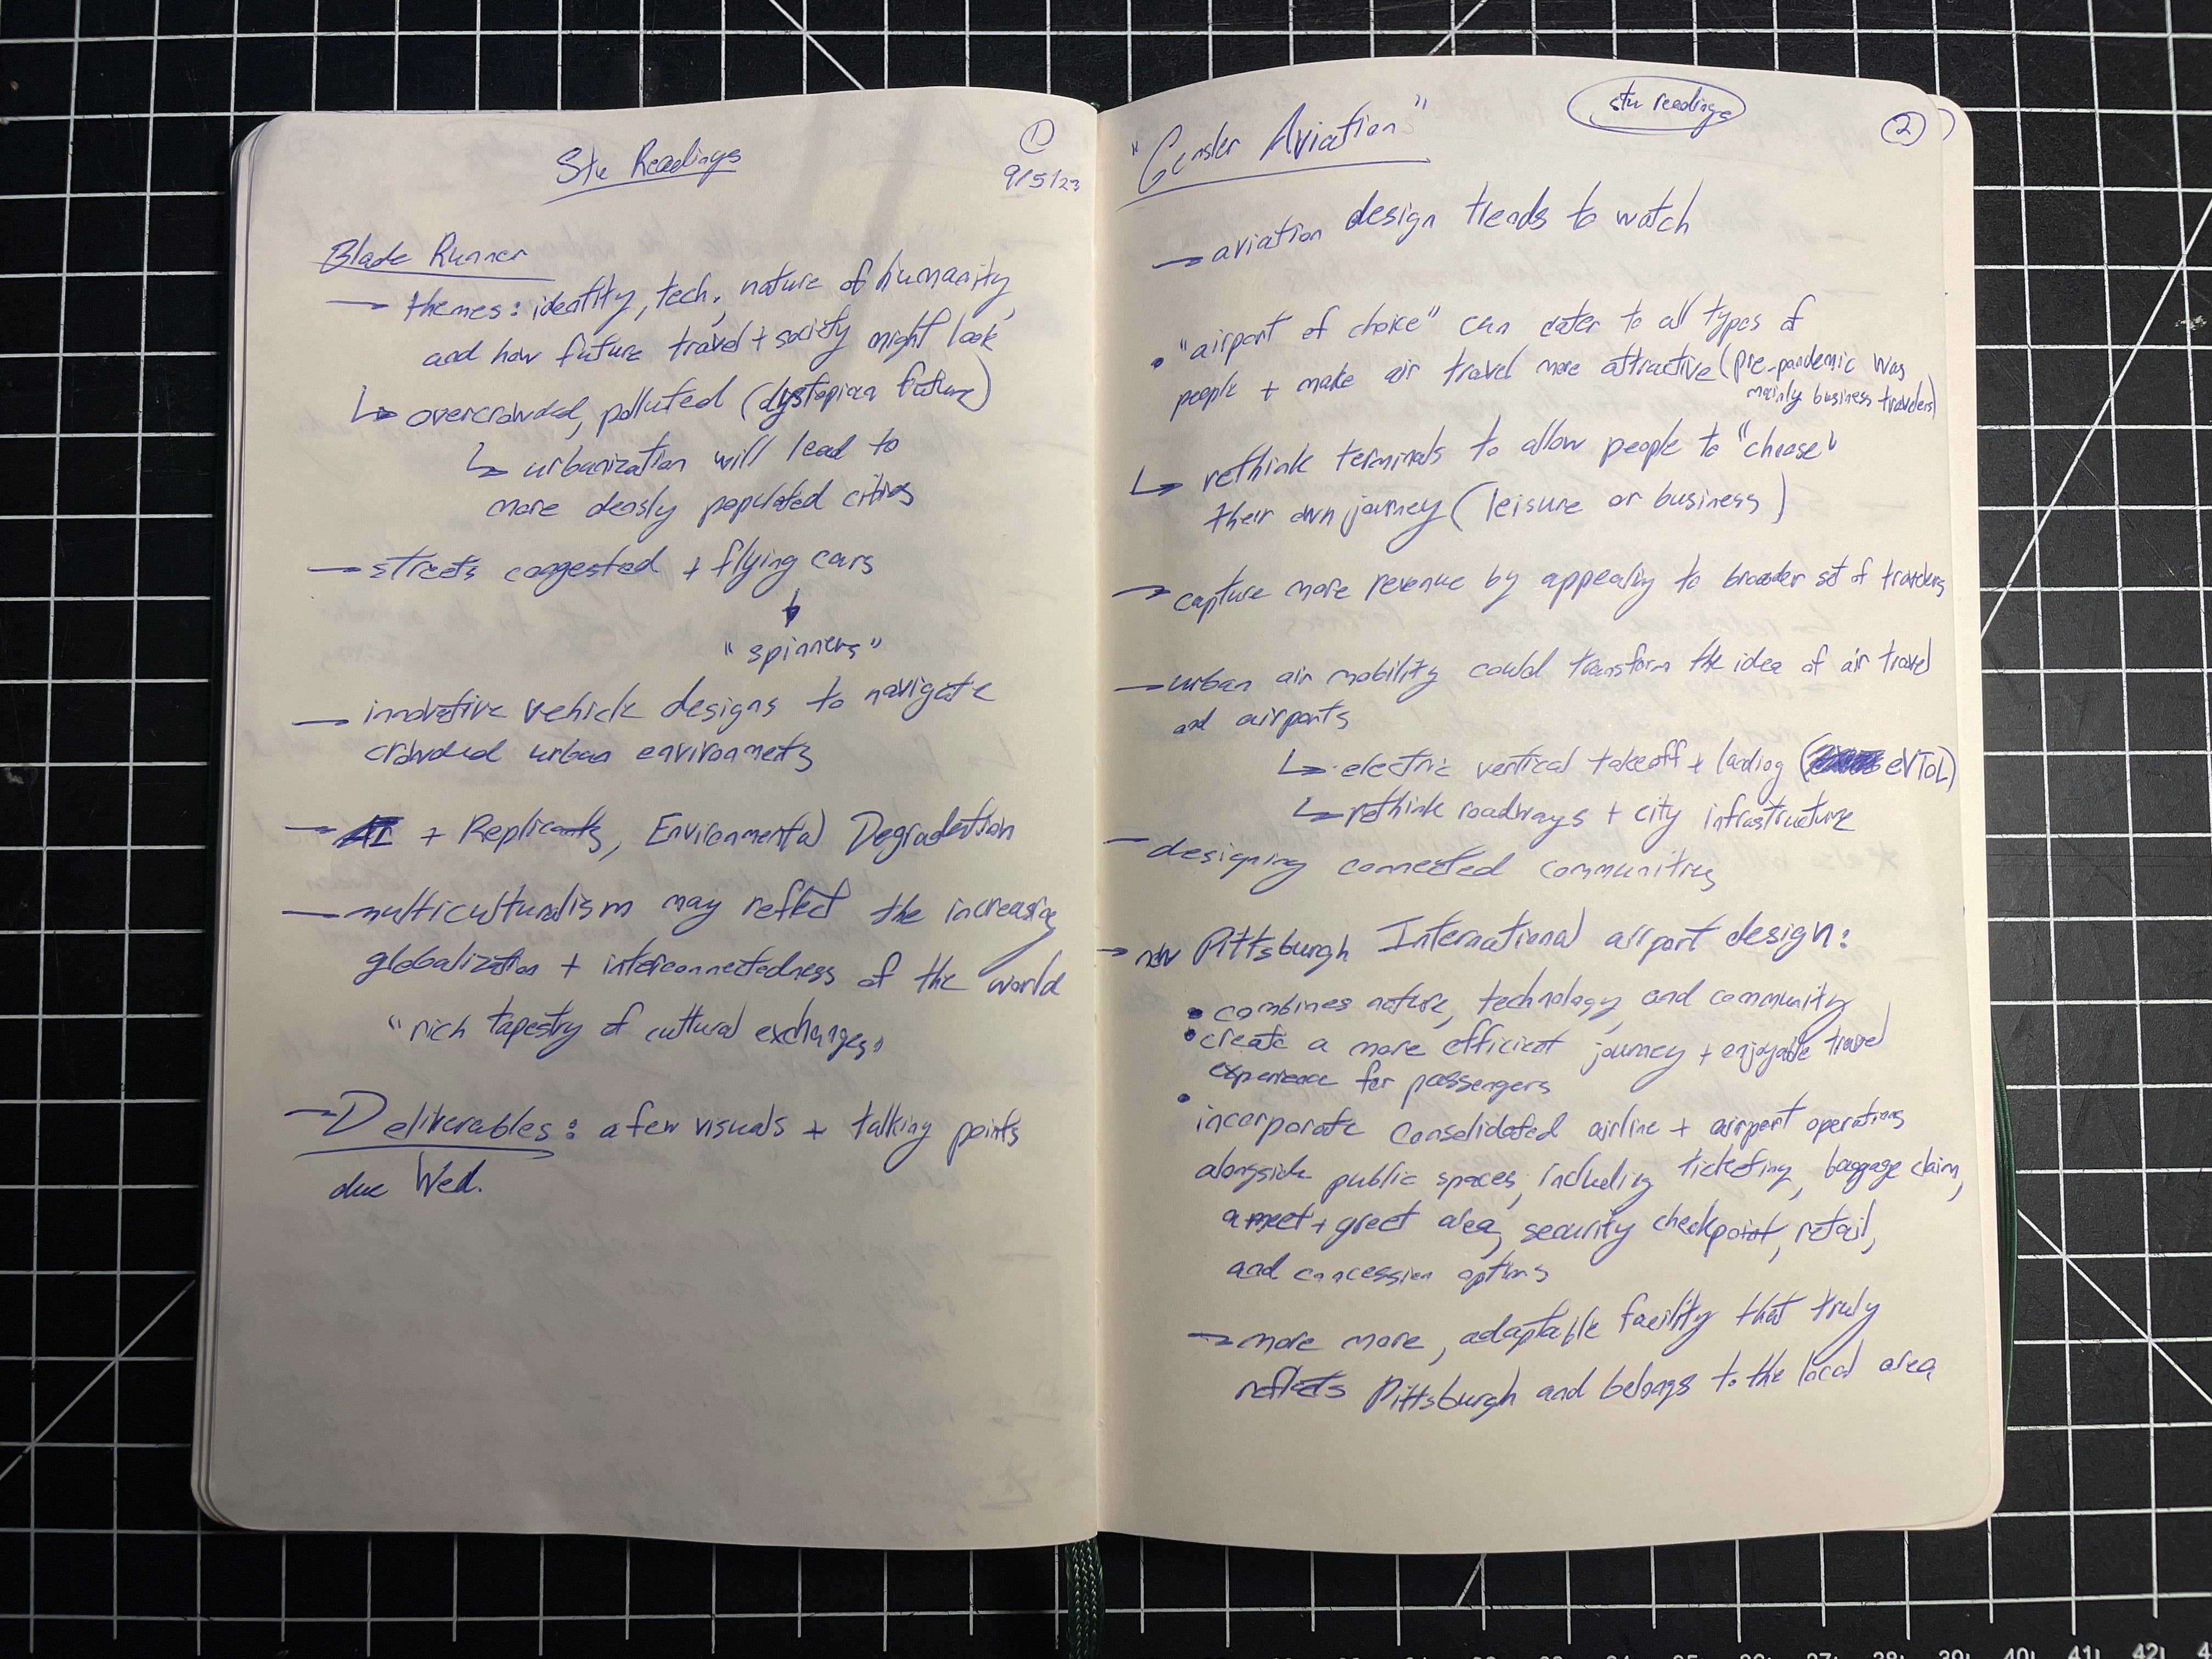 Stu Readings
①
9/5/23
Blade Runner
→ themes: identity, tech, nature of humanity,
and how future travel + society might look
↳ overcrowded, polluted (dystopian future)
↳ urbanization will lead to
more densly populated cities
→ streets congested + flying cars
↓
"spinners"
→ innovative vehicle designs to navigate
crowded urban environments
→ AI + Replicants, Environmental Degradation
→ multiculturalism may reflect the increasing
globalization + interconnectedness of the world
"rich tapestry of cultural exchanges"
→ Deliverables: a few visuals + talking points
due Wed.
stu readings
②
"Gensler Aviation"
→ aviation design trends to watch
• "airport of choice" can cater to all types of
people + make air travel more attractive (pre-pandemic was
mainly business travelers)
↳ rethink terminals to allow people to "choose"
their own journey (leisure or business)
→ capture more revenue by appealing to broader set of travelers
→ urban air mobility could transform the idea of air travel
and airports
↳ electric vertical takeoff + landing (eVTOL)
↳ rethink roadways + city infrastructure
— designing connected communities
→ new Pittsburgh International airport design:
• combines nature, technology, and community
• create a more efficient journey + enjoyable travel
experience for passengers
• incorporate consolidated airline + airport operations
alongside public spaces, including ticketing, baggage claim,
a meet + greet area, security checkpoint, retail,
and concession options
→ more more, adaptable facility that truly
reflects Pittsburgh and belongs to the local area
36 37 38 39 40 41 42